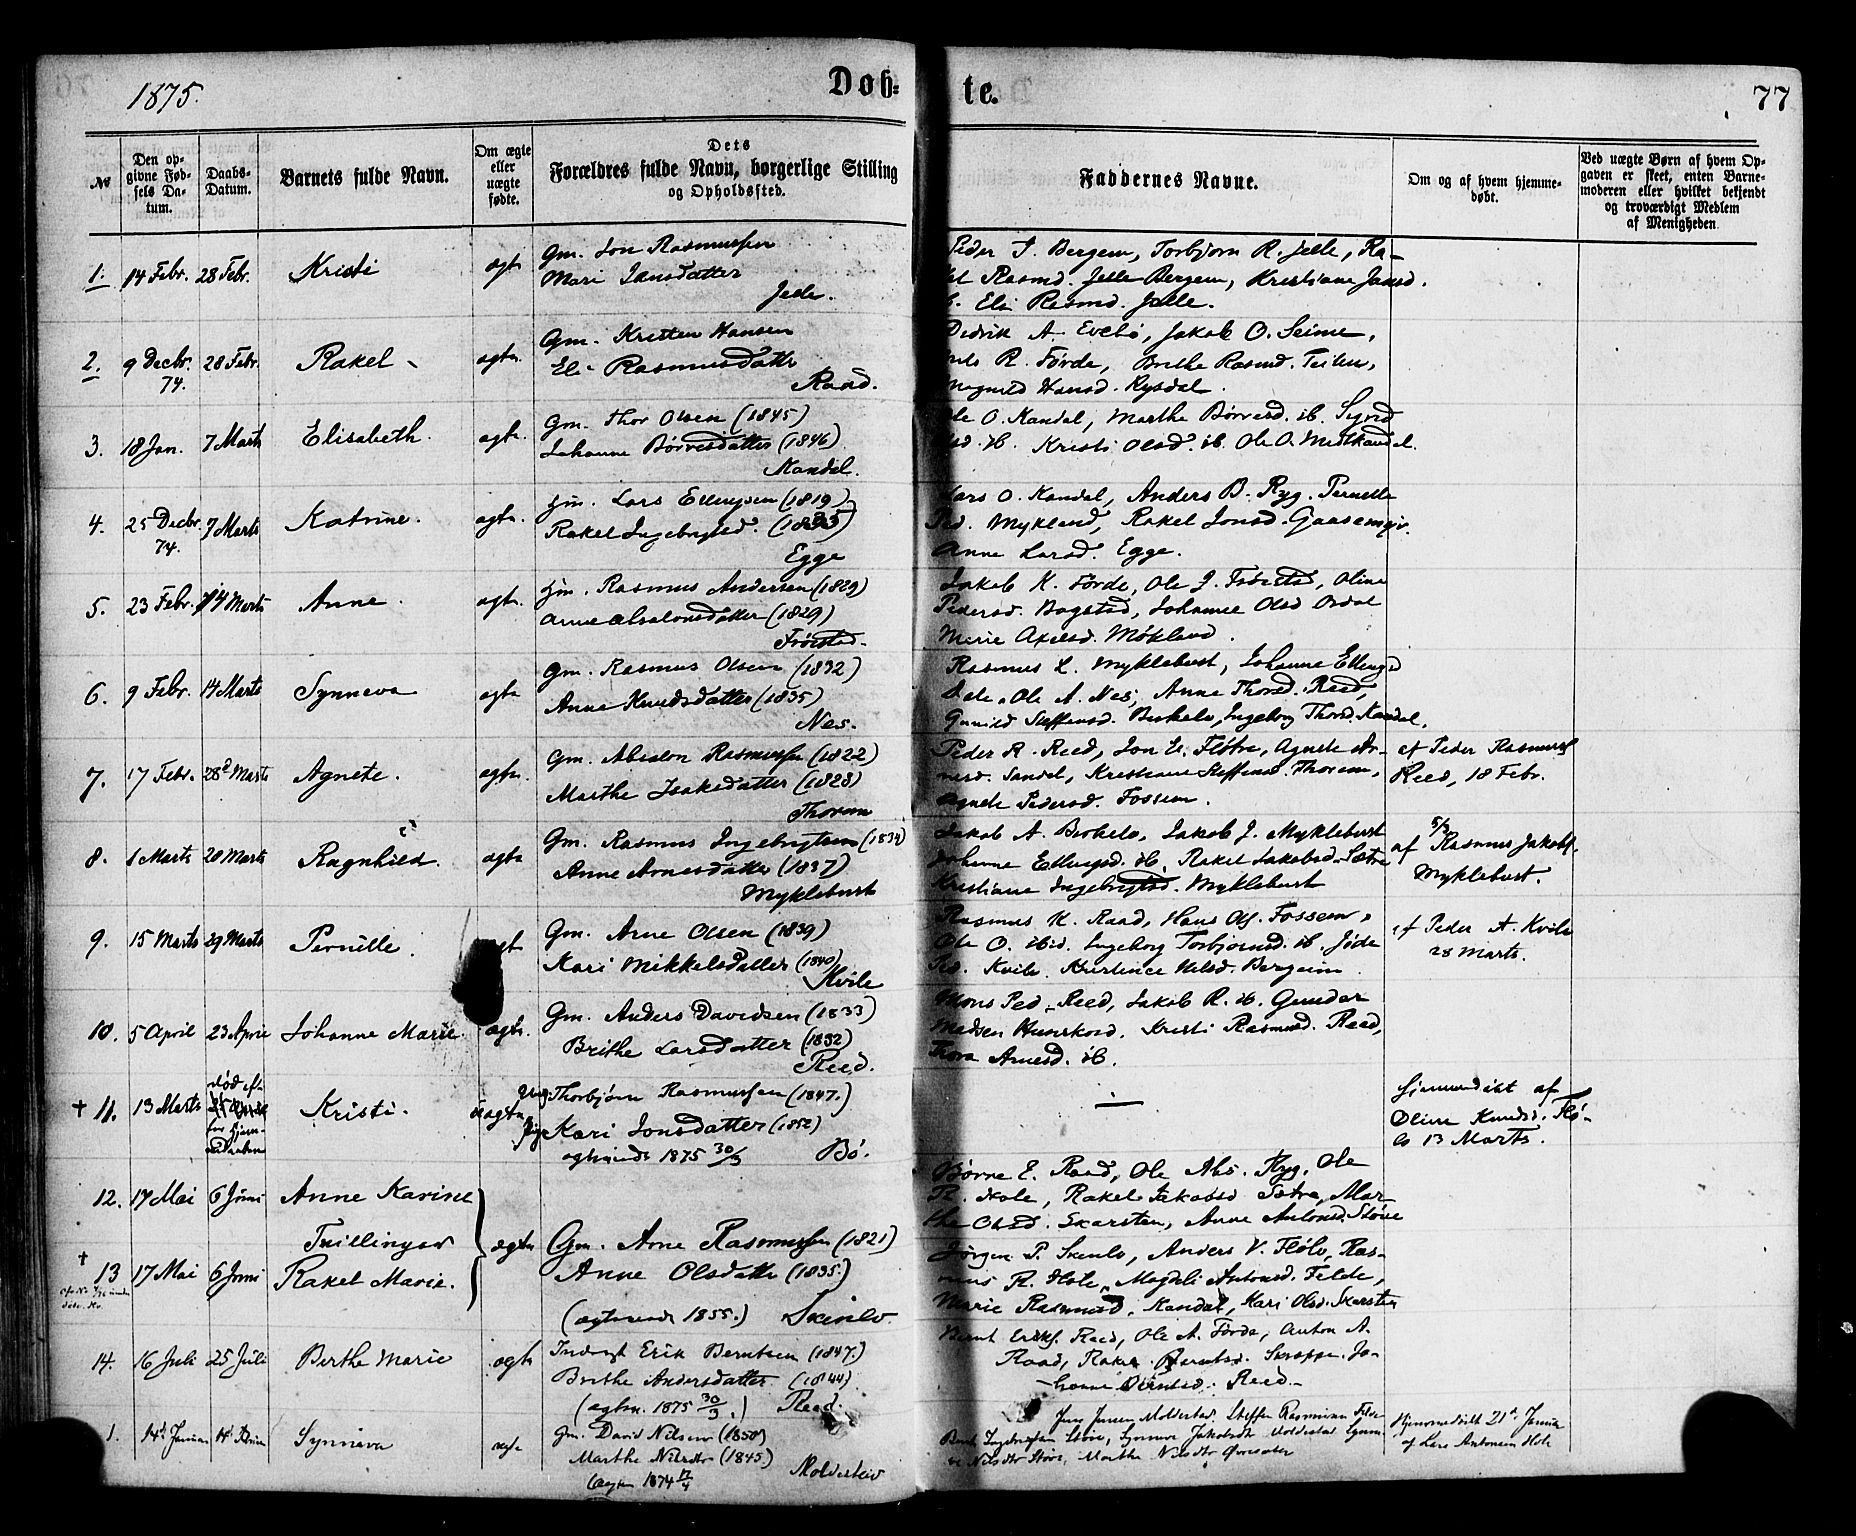 1875.
Døb-
te.
77
№
Den op-
givne Fød-
sels Da-
tum.
Daabs-
Datum.
Barnets fulde Navn.
Om ægte
eller
uægte
fødte.
Dets
Forældres fulde Navn, borgerlige Stilling
og Opholdssted.
Faddernes Navne.
Om og af hvem hjemme-
døbt.
Ved uægte Børn af hvem Op-
gaven er skeet, enten Barne-
moderen eller hvilket bekjendt
og troværdigt Medlem
af Menigheden.
1. 14 Febr. 28 Febr. Kristi ægt. Gm. Jon Rasmussen
Mari
Peder J. Bergem, Torbjørn R. Ra-
Rasmd. Bergem, Kristiane
Eli Rasmd.
2. 9 Decbr. 74. 28 Febr. Rakel ægte. Gm. Kristen Hansen
Eli Rasmusdatter
Raad.
Didrik A. Evebø, Jakob O. Seime,
R. Førde, Brithe Rasmd.
Hansd. Rysdal.
3. 18 Jan. 7 Marts Elisabeth. ægte. Gm. Thor Olsen (1845)
Johanne Børresdatter (1846)
Kandal.
Ole O. Kandal, Marthe Børresd. ib. Sigrid
ib. Kristi Olsd. ib. Ole O. Medkandal.
4. 25 Decbr. 74. 7 Marts Katrine. ægte. Gm. Lars Ellingsen (1819)
Rakel Ingebrigtsd.
Egge
Lars O. Kandal, Anders B. Ryg. Pernille
Ped. Mykland, Rakel Jonsd.
Anne Larsd. Egge.
5. 23 Febr. 14 Marts Anne. ægte. Gm. Rasmus Andersen (1829)
Anne Absalonsdatter (1829)
Frøistad.
Jakob K. Førde, Ole J. Frøistad, Oline
Pedersd. Bogstad, Johanne Olsd
Marie Axelsd. Møkland.
6. 9 Febr. 14 Marts Synneva ægte Gm. Rasmus Olsen (1832)
Anne Knudsdatter (1835)
Nes.
Rasmus L. Myklebust, Johanne
Ole A. Nes, Anne Thord. Reed,
Gunild Steffensd. Birkelo, Ingeborg Thord. Kandal.
7. 17 Febr. 28d Marts Agnete. ægte. Gm. Absalon Rasmussen (1822)
Marthe Isaksdatter (1828)
Thorem
Peder R. Reed, Jon E. Fløtre, Agnete Ar-
nesd. Sandal, Kristiane Steffensd. Thorem,
Agnete Pedersd. Fossem.
af Peder Rasmuss
Reed, 18 Febr.
8. 1 Marts 28 Marts Ragnhild. ægte Gm. Rasmus Ingebrigtsen (1834)
Anne Arnesdatter (1837)
Myklebust
Jakob A. Birkelo, Jakob J. Myklebust
Johanne Ellingsd. ib. Rakel Jakobsd. Sætre
Kristiane Ingebrigtsd. Myklebust
5/3
af Rasmus Jakobs.
Myklebust.
9. 15 Marts 29 Marts Pernille. ægt. Gm. Arne Olsen (1839)
Kari Mikkelsdatter (1840)
Kvile
Rasmus K. Raad, Hans Ols. Fossem,
Ole O. ibid. Ingeborg Torbjørnsd. ib.
Ped. Kvile, Kristence Nilsd. Bergeim
af Peder A. Kvile
28 Marts.
10. 5 April 23 April Johanne Marie. ægte. Gm. Anders Davidsen (1833)
Brithe Larsdatter (1832)
Reed.
Mons Ped. Reed, Jakob R. ib. Gunder
Madsen Kristi Rasmusd. Reed,
Thora Arnesd. ib.
† 11. 13 Marts død ef-
ter Hjem-
medaaben Kristi. uægte Ung. Thorbjørn Rasmussen (1847.)
Pige Kari Jonsdatter (1852)
ægteviede 1875 30/3 Bø.
—
Hjemmedøbt af
Oline Knudsd. Flø-
lo 13 Marts.
12. 17 Mai 6 Juni Anne Karine
Tvillinger
† 13 17 Mai 6 Juni Rakel Marie.
ægte Gm. Arne Rasmussen (1821)
Anne Olsdatter (1835.)
(ægteviede 1855.) Skinlo.
Børre E. Raad, Ole Abs. Ryg, Ole
R. Hole, Rakel Jakobsd Sætre, Mar-
the Olsd. Skarsten, Anne Antonsd. Støve
Jørgen P. Skinlo, Anders V. Flølo, Ras-
mus R. Hole, Magdeli Antonsd. Felde,
Marie Rasmusd. Kandal, Kari Olsd. Skarsten
14. 16 Juli 25 Juli Berthe Marie ægte Indrgst Erik Berntsen (1847.)
Brithe Andersdatter. (1844)
(ægtev. 1875 30/3.) Reed.
Bernt Eriks. Reed, Ole A. Førde, Anton A.
Raad, Rakel Berntsd. Skrøppe, Jo-
hanne Berntsd. Reed.
1. 14d Januar Synneva ægte Gm. David Nilsen (1850)
Marthe Nilsdtr (1845)
(ægtev. 1874 17/4 Moldestad
Jens Jensen Moldestad. Steffen Rasmussen Felde
Bernt Ingebrigtsen Støve, Synneve Jakobsdtr Moldestad
Nilsdtr Støve, Marthe Nilsdtr
Hjemmedøbt 21d Januar
af Lars Antonsen Hole